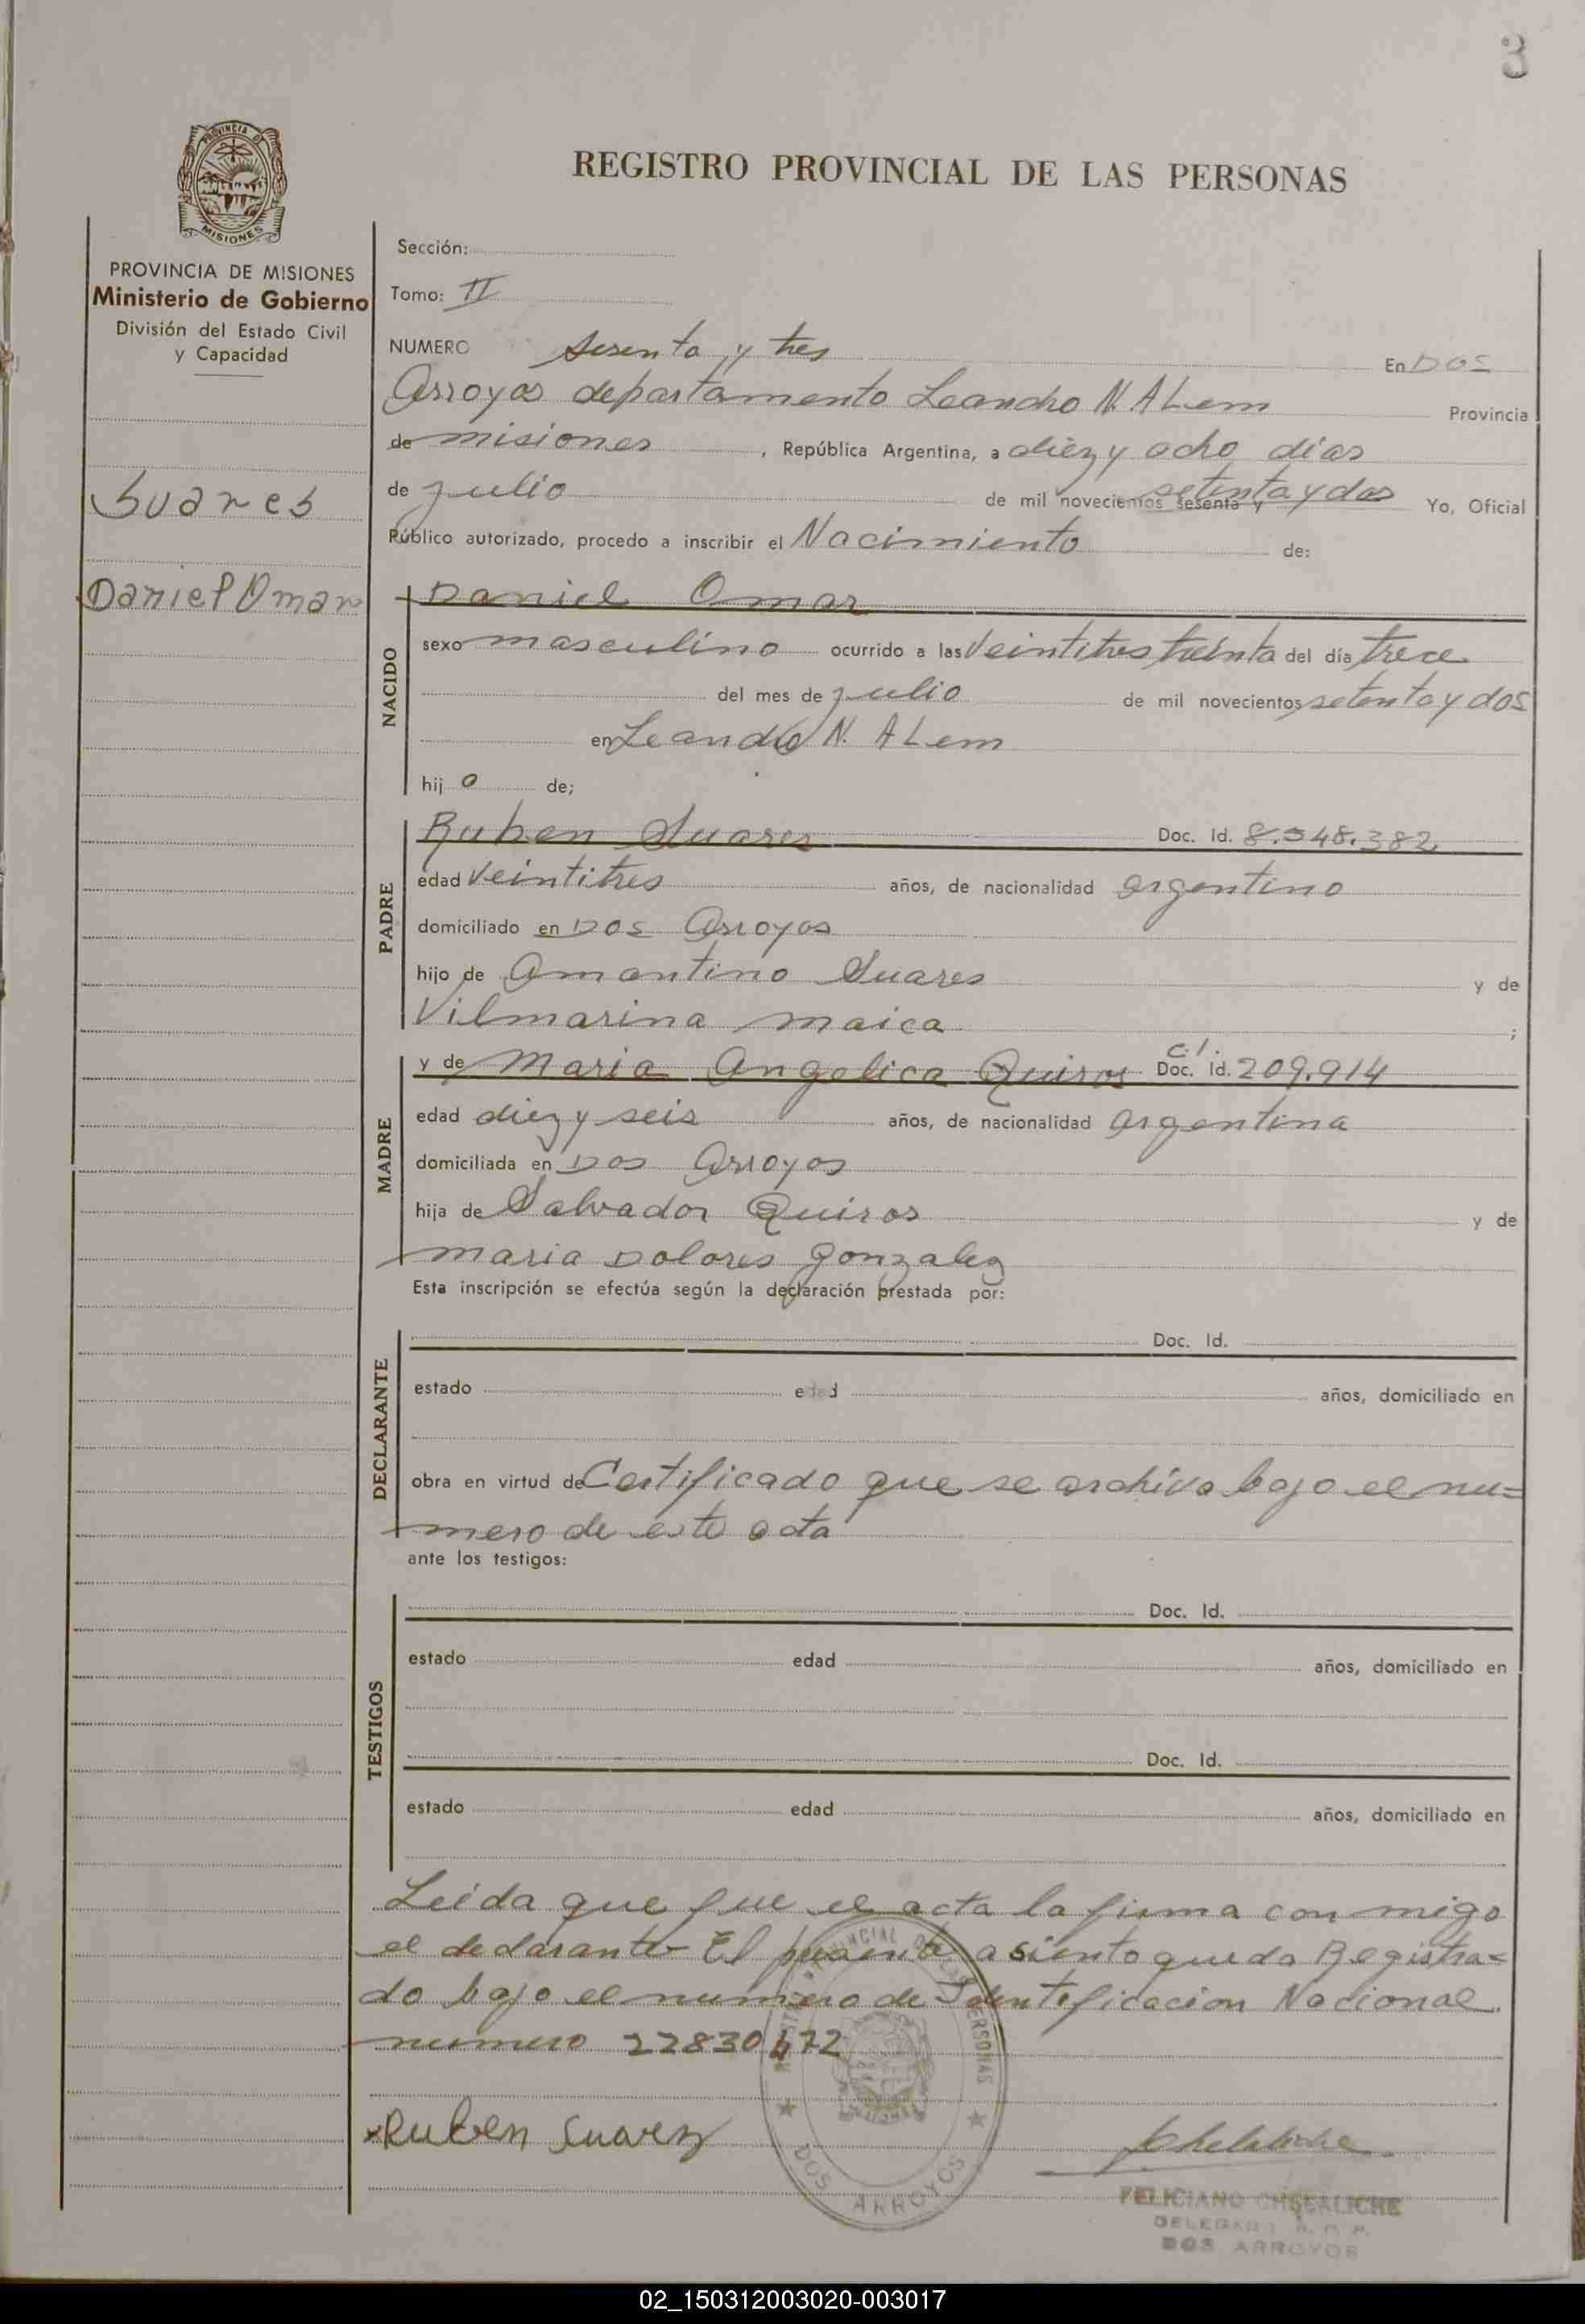 3
PROVINCIA DE
MISIONES
REGISTRO PROVINCIAL DE LAS PERSONAS
PROVINCIA DE MISIONES
Ministerio de Gobierno
División del Estado Civil
y Capacidad
Suares
Daniel Omar
Sección:
Tomo: II
NUMERO sesenta y tres En Dos
Arroyos departamento Leandro N. ALem Provincia
de misiones, República Argentina, a diez y ocho dias
de julio de mil novecientos sesenta y setenta y dos Yo, Oficial
Público autorizado, procedo a inscribir el Nacimiento de:
NACIDO
Daniel Omar
sexo masculino ocurrido a las Veintitres treinta del día trece
del mes de julio de mil novecientos setenta y dos
en Leandro N. ALem
hij o de;
PADRE
Ruben Suares Doc. Id. 8.548.382
edad Veintitres años, de nacionalidad argentino
domiciliado en Dos Arroyos
hijo de Amantino Suares y de
Vilmarina maica ;
MADRE
y de Maria Angelica Quiros C.I. Doc. Id. 209.914
edad diez y seis años, de nacionalidad argentina
domiciliada en Dos Arroyos
hija de Salvador Quiros y de
maria Dolores gonzalez
Esta inscripción se efectúa según la declaración prestada por:
DECLARANTE
Doc. Id.
estado edad años, domiciliado en
obra en virtud de Certificado que se archiva bajo el nu=
mero de este acta
ante los testigos:
TESTIGOS
Doc. Id.
estado edad años, domiciliado en
Doc. Id.
estado edad años, domiciliado en
Leida que fue el acta la firma con migo
el declarante El presente asiento queda Registra=
do bajo el numero de Identificacion Nacional
numero 22830472
Ruben Suarez
DOS ARROYOS
FELICIANO CHELALICHE
DELEGADO R. P. P.
DOS ARROYOS
02_150312003020-003017